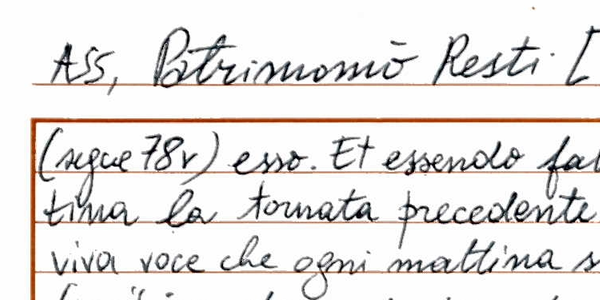 ASS, Patrimonio Resti [
(segue 78v) esso. Et essendo fat
tima la tornata precedente
viva voce che ogni mattina s